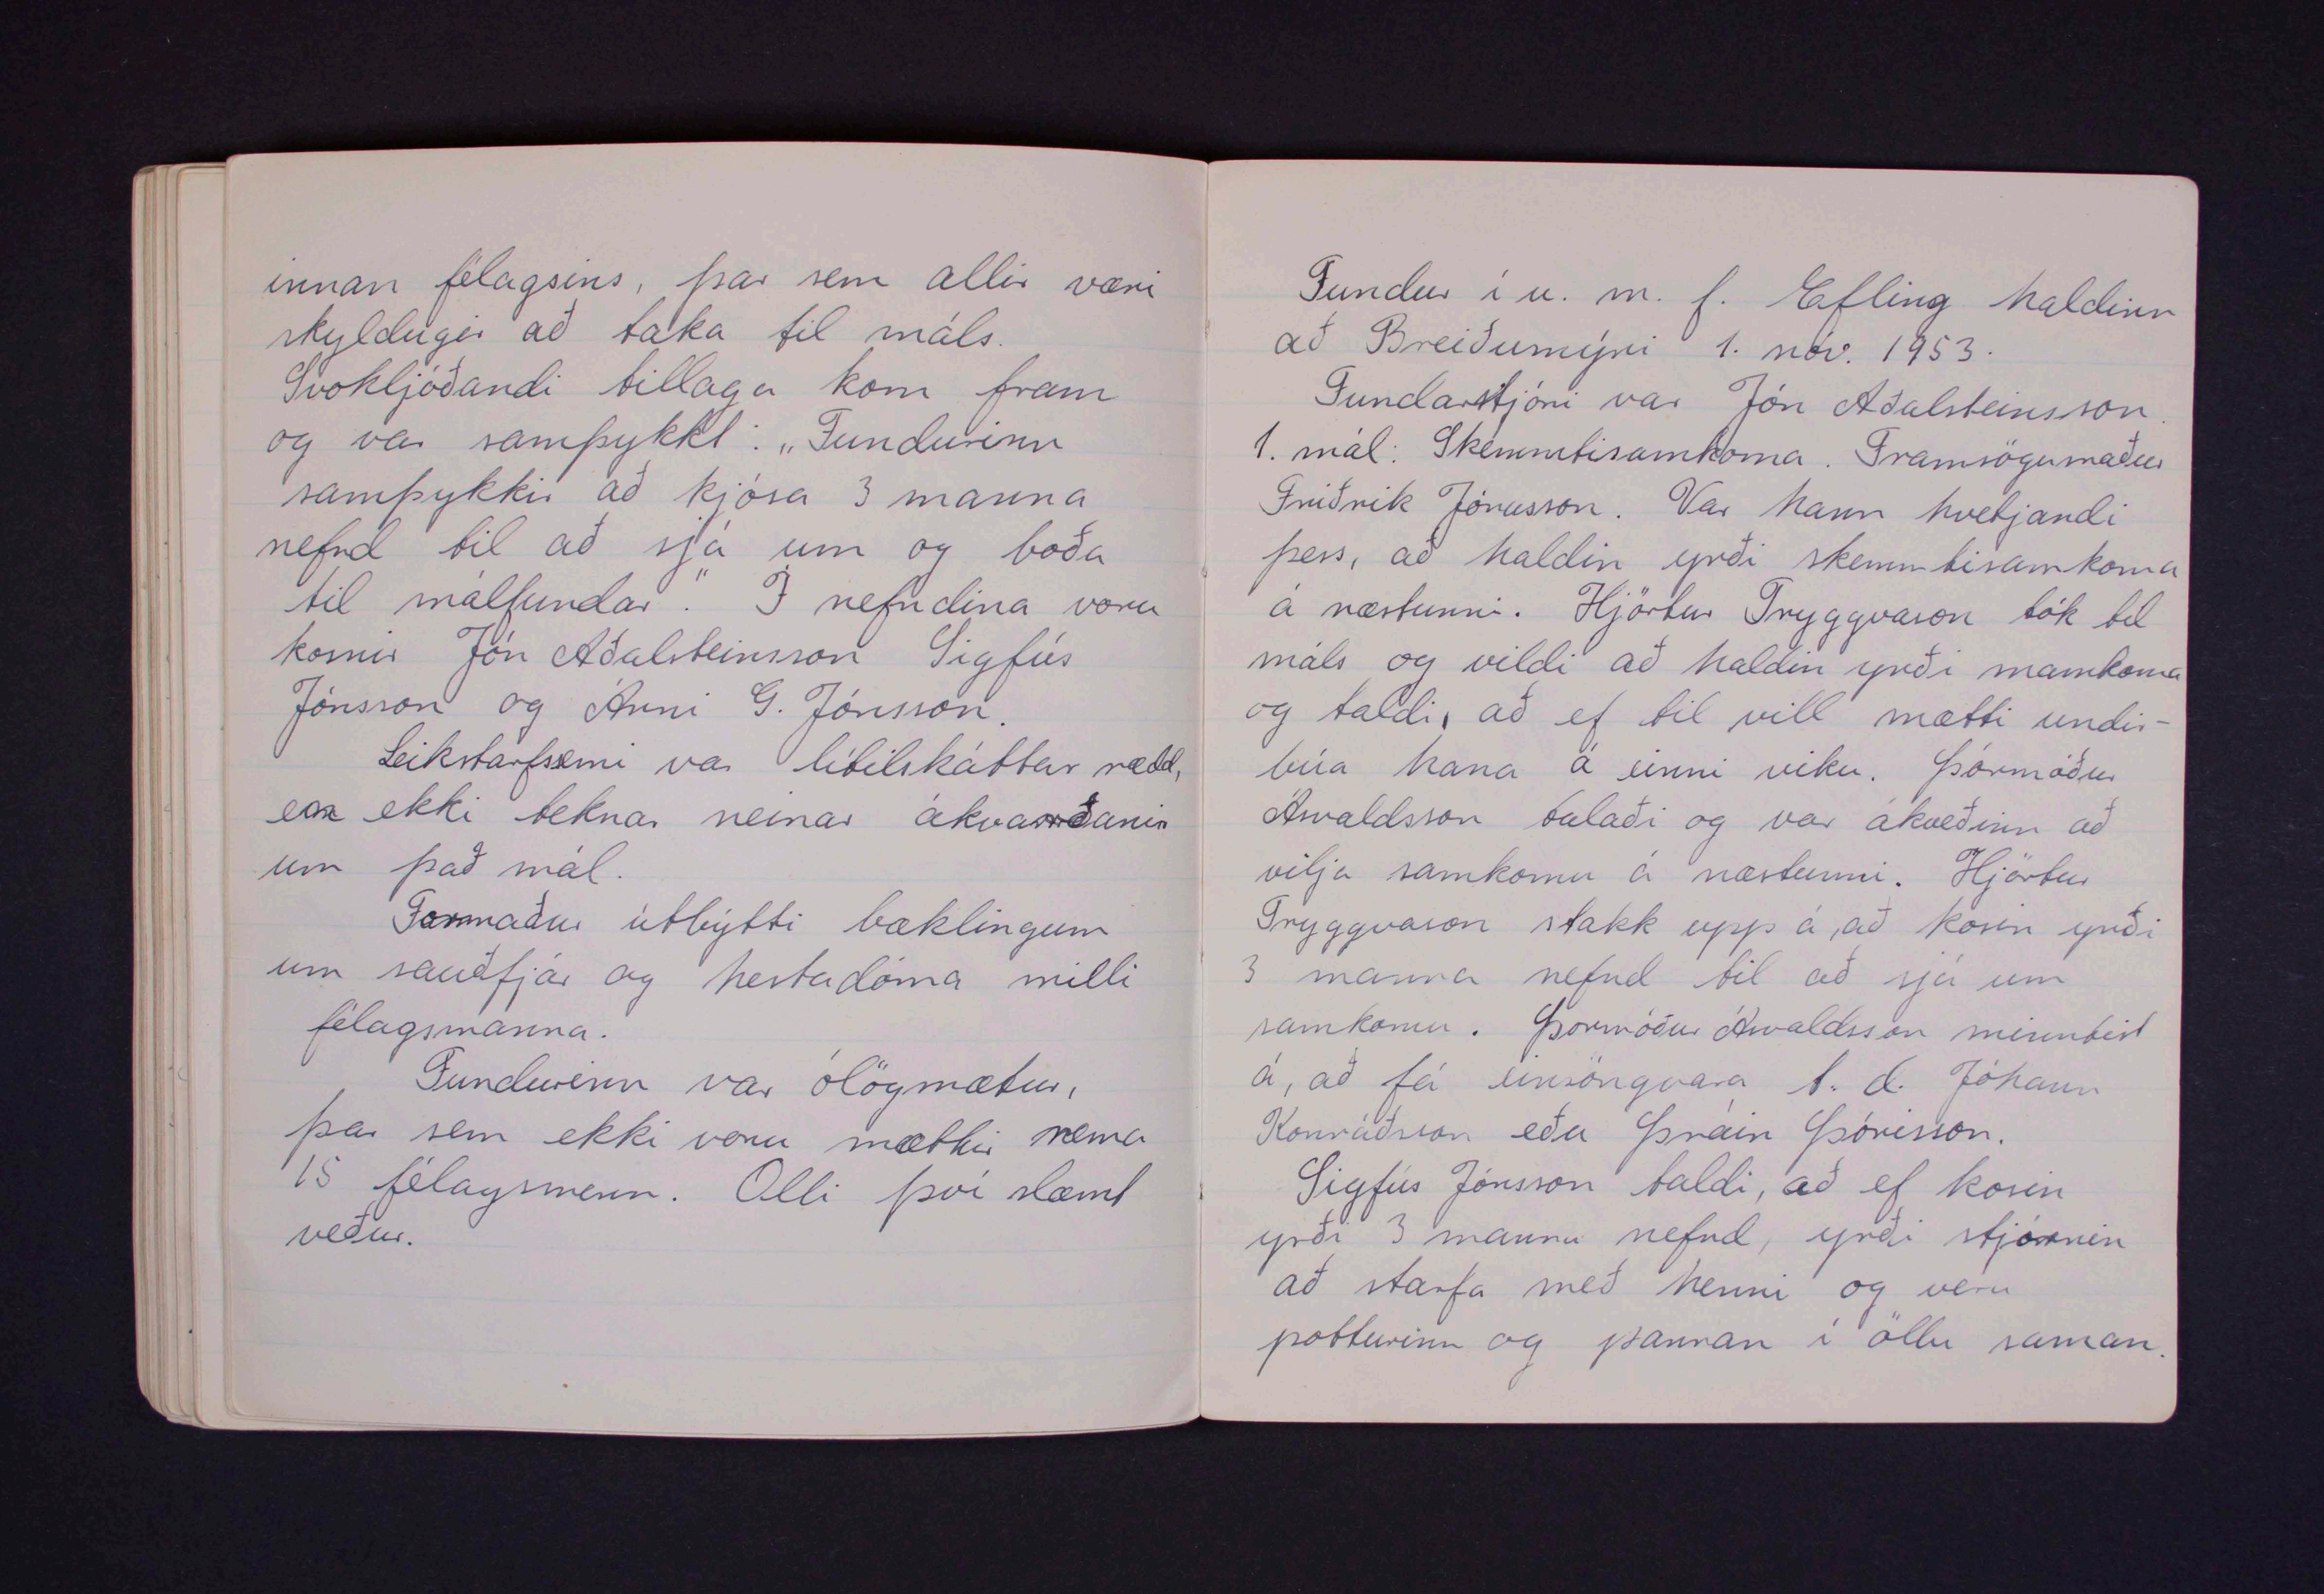 innan félagsins, þar sem allir væri
skyldugir að taka til máls.
Svokljóðandi tillaga kom fram
og var samþykkt: „Fundurinn
samþykkir að kjósa 3 manna
nefnd til að sjá um og boða
til málfundar." Í nefndina voru
kosnir Jón Aðalsteinsson Sigfús
Jónsson og Árni G. Jónsson.
Leikstarfsemi var lítilsháttar rædd,
en ekki teknar neinar ákvarðanir
um það mál.
Formaður útbýtti bæklingum
um sauðfjár og hestadóma milli
félagsmanna.
Fundurinn var ólögmætur,
þar sem ekki voru mættir nema
15 félagsmenn. Olli því slæmt
veður.
Fundur í u. m. f. Efling haldinn
að Breiðumýri 1. nóv. 1953.
Fundarstjóri var Jón Aðalsteinsson.
1. mál: Skemmtisamkoma. Framsögumaður
Friðrik Jónasson. Var hann hvetjandi
þess, að haldin yrði skemmtisamkoma
á næstunni. Hjörtur Tryggvason tók til
máls og vildi að haldin yrði samkoma
og taldi, að ef til vill mætti undir-
búa hana á einni viku. Þormóður
Ásvaldsson talaði og var ákveðinn að
vilja samkomu á næstunni. Hjörtur
Tryggvason stakk upp á, að kosin yrði
3 manna nefnd til að sjá um
samkomu. Þormóður Ásvaldsson minntist
á, að fá einsöngvara t. d. Jóhann
Konráðsson eða Þráin Þórisson.
Sigfús Jónsson taldi, að ef kosin
yrði 3 manna nefnd, yrði stjórnin
að starfa með henni og vera
potturinn og pannan í öllu saman.